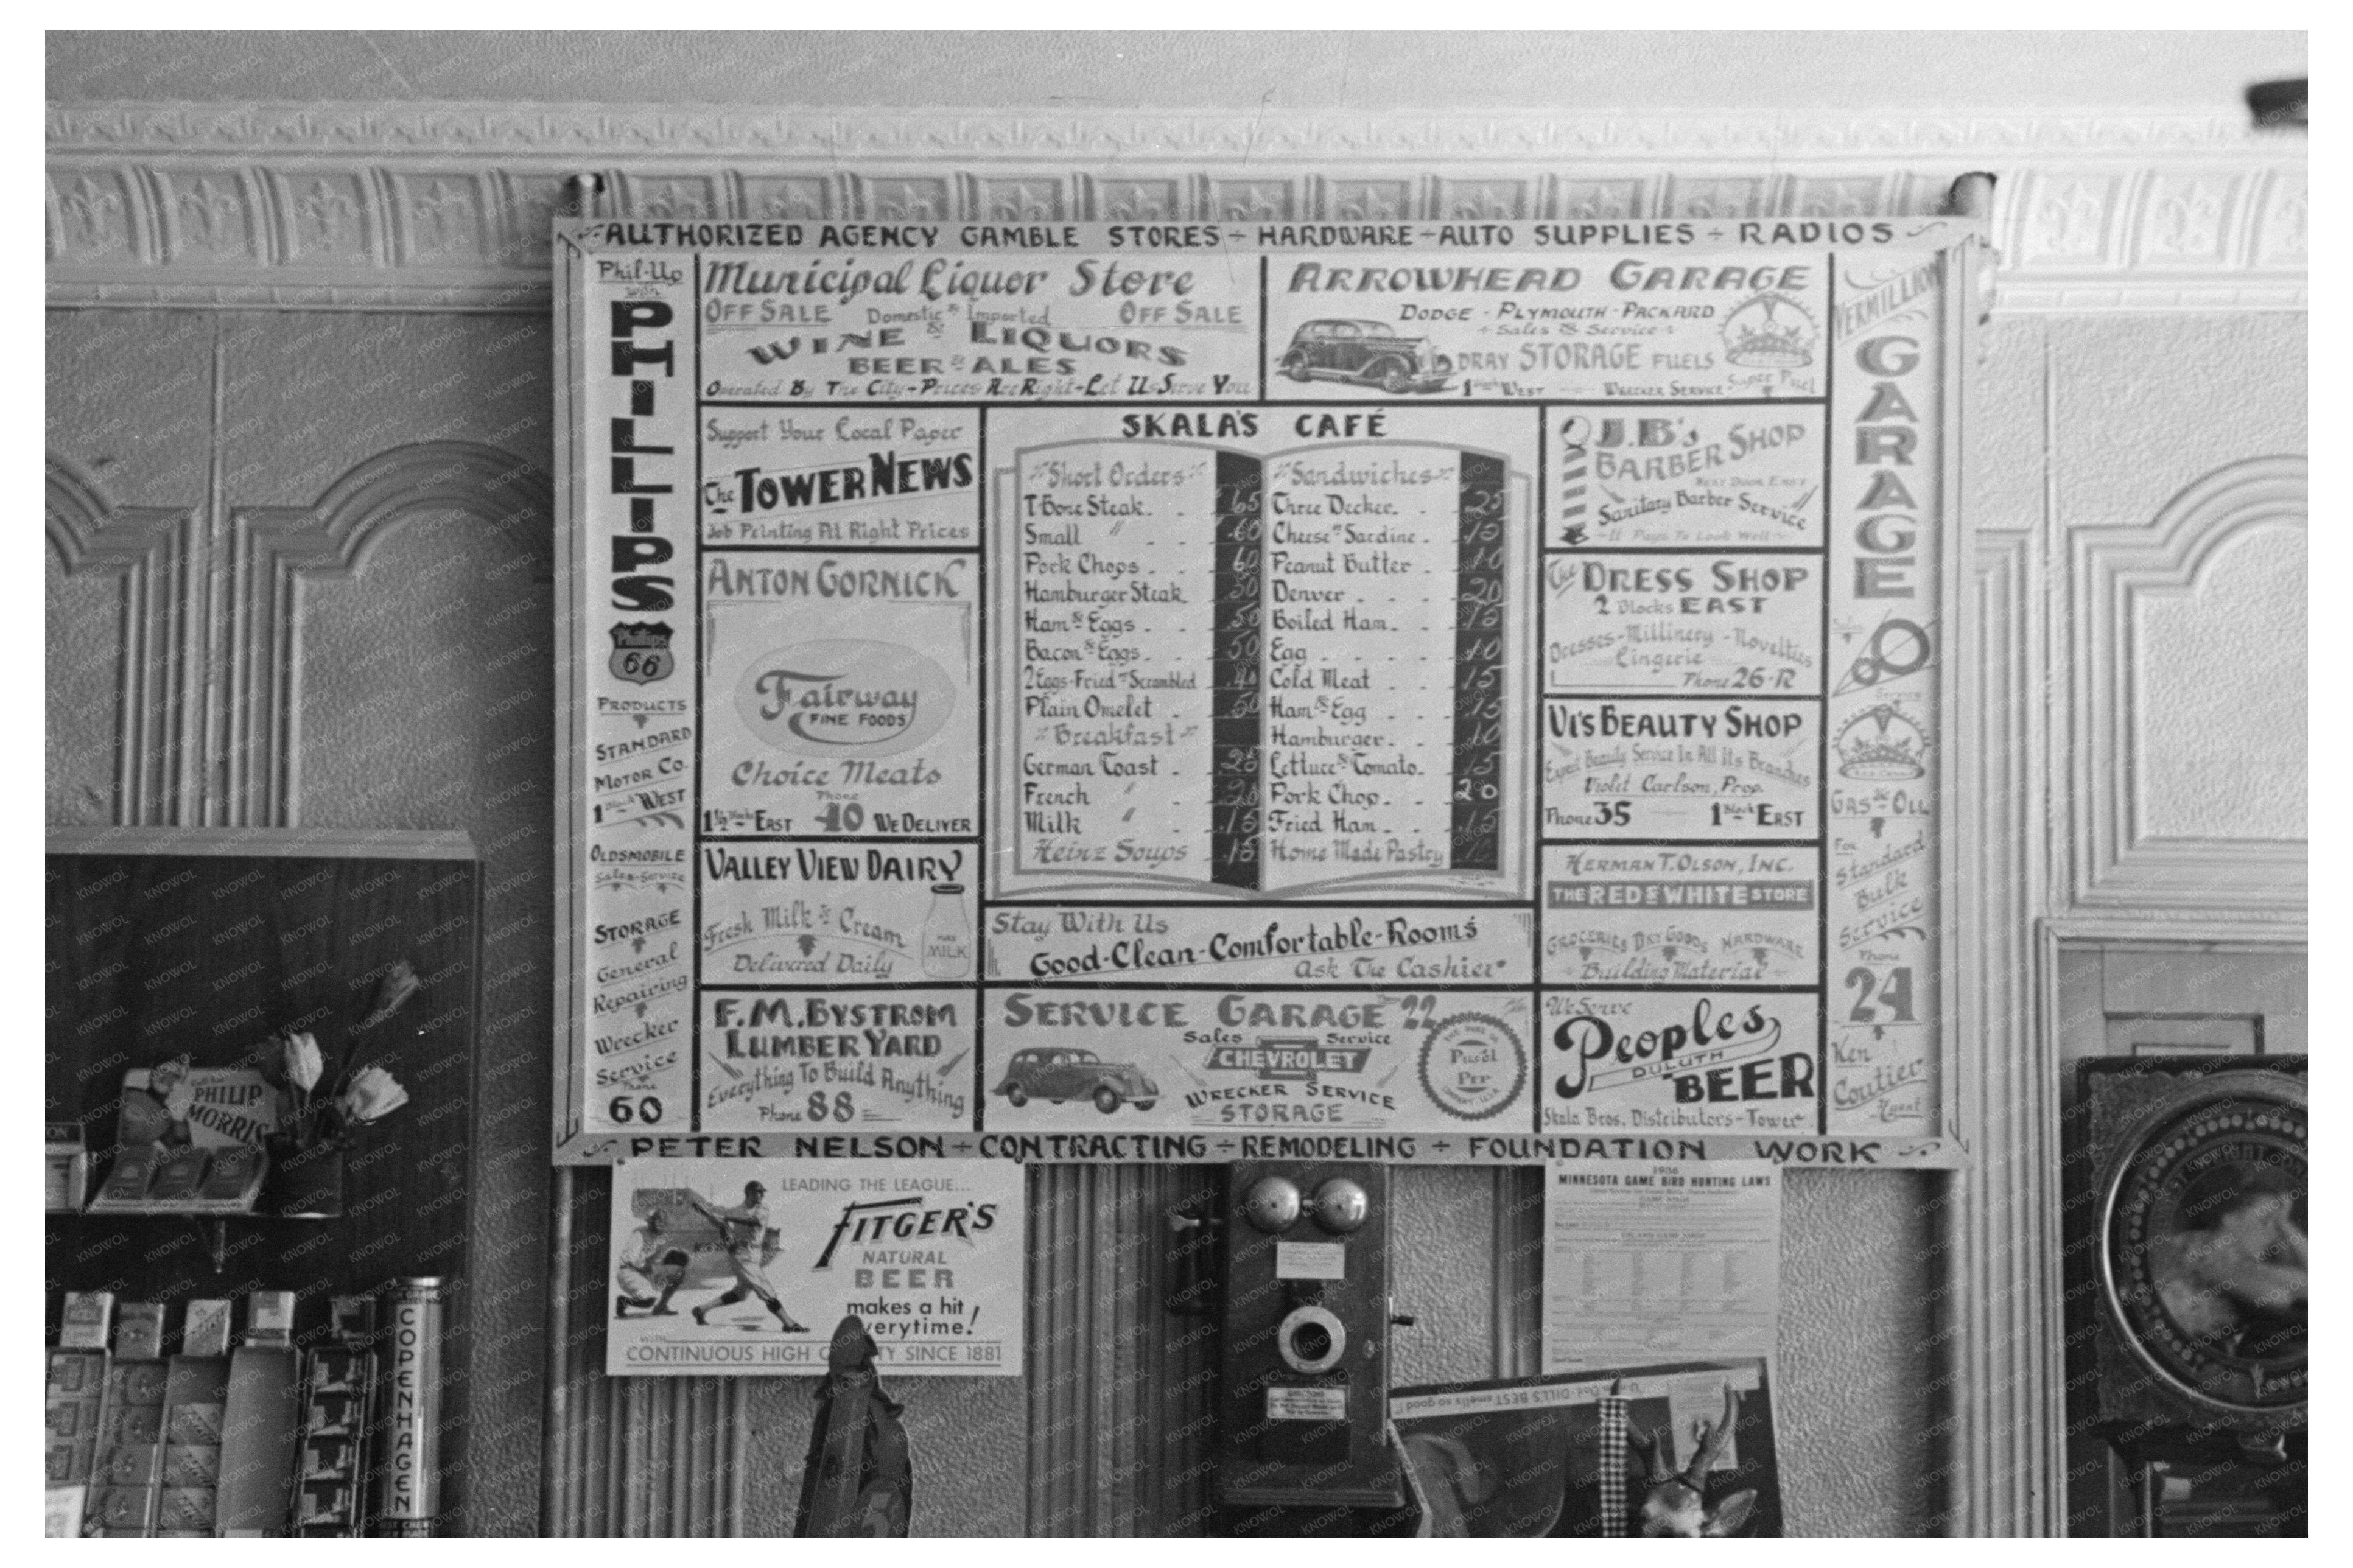 AUTHORIZED AGENCY GAMBLE STORES ÷ HARDWARE ÷ AUTO SUPPLIES ÷ RADIOS
Phil-Up
with
PHILLIPS
Phillips
66
PRODUCTS
STANDARD
MOTOR CO.
1 Block WEST
OLDSMOBILE
Sales-Service
STORAGE
General
Repairing
Wrecker
Service
Phone
60
Municipal Liquor Store
OFF SALE Domestic & Imported OFF SALE
WINE & LIQUORS
BEER & ALES
Operated By The City - Prices Are Right - Let Us Serve You
ARROWHEAD GARAGE
DODGE - PLYMOUTH - PACKARD
Sales & Service
DRAY STORAGE FUELS
1 Block WEST WRECKER SERVICE
Super Fuel
VERMILLION
GARAGE
Sales
Service
RED CROWN
GAS & OIL
For
Standard
Bulk
Service
Phone
24
Ken
Coutier
Agent
Support Your Local Paper
The TOWER NEWS
Job Printing At Right Prices
ANTON GORNICK
Fairway
FINE FOODS
Choice Meats
Phone
1½ Blocks EAST 40 WE DELIVER
VALLEY VIEW DAIRY
Fresh Milk & Cream
Delivered Daily
PURE
MILK
F.M. BYSTROM
LUMBER YARD
Everything To Build Anything
Phone 88
SKALA'S CAFÉ
Short Orders
T-Bone Steak 65
Small " 60
Pork Chops 60
Hamburger Steak 50
Ham & Eggs 50
Bacon & Eggs 50
2 Eggs-Fried or Scrambled 40
Plain Omelet 50
Breakfast
German Toast 25
French " 20
Milk " 15
Heinz Soups 15
Sandwiches
Three Decker 25
Cheese or Sardine 15
Peanut Butter 10
Denver 20
Boiled Ham 15
Egg 10
Cold Meat 15
Ham & Egg 15
Hamburger 10
Lettuce & Tomato 15
Pork Chop 20
Fried Ham 15
Home Made Pastry 10
Stay With Us
Good-Clean-Comfortable-Rooms
Ask The Cashier
SERVICE GARAGE Phone 22
Sales Service
CHEVROLET
WRECKER SERVICE
STORAGE
THE PURE OIL
Purol
Pep
COMPANY, U.S.A.
J.B's
BARBER SHOP
NEXT DOOR EAST
Sanitary Barber Service
It Pays To Look Well
The DRESS SHOP
2 Blocks EAST
Dresses-Millinery-Novelties
Lingerie
Phone 26-R
VI'S BEAUTY SHOP
Expert Beauty Service In All Its Branches
Violet Carlson, Prop.
Phone 35 1 Block EAST
HERMAN T. OLSON, INC.
THE RED & WHITE STORE
GROCERIES DRY GOODS HARDWARE
Building Material
We Serve
Peoples
DULUTH
BEER
Skala Bros. Distributors-Tower
PETER NELSON ÷ CONTRACTING ÷ REMODELING ÷ FOUNDATION WORK
LEADING THE LEAGUE...
FITGER'S
NATURAL
BEER
makes a hit
verytime!
CONTINUOUS HIGH Q TY SINCE 1881
1936
MINNESOTA GAME BIRD HUNTING LAWS
Call for
PHILIP
MORRIS
COPENHAGEN
DILL'S BEST smells so good!
KNOWOL